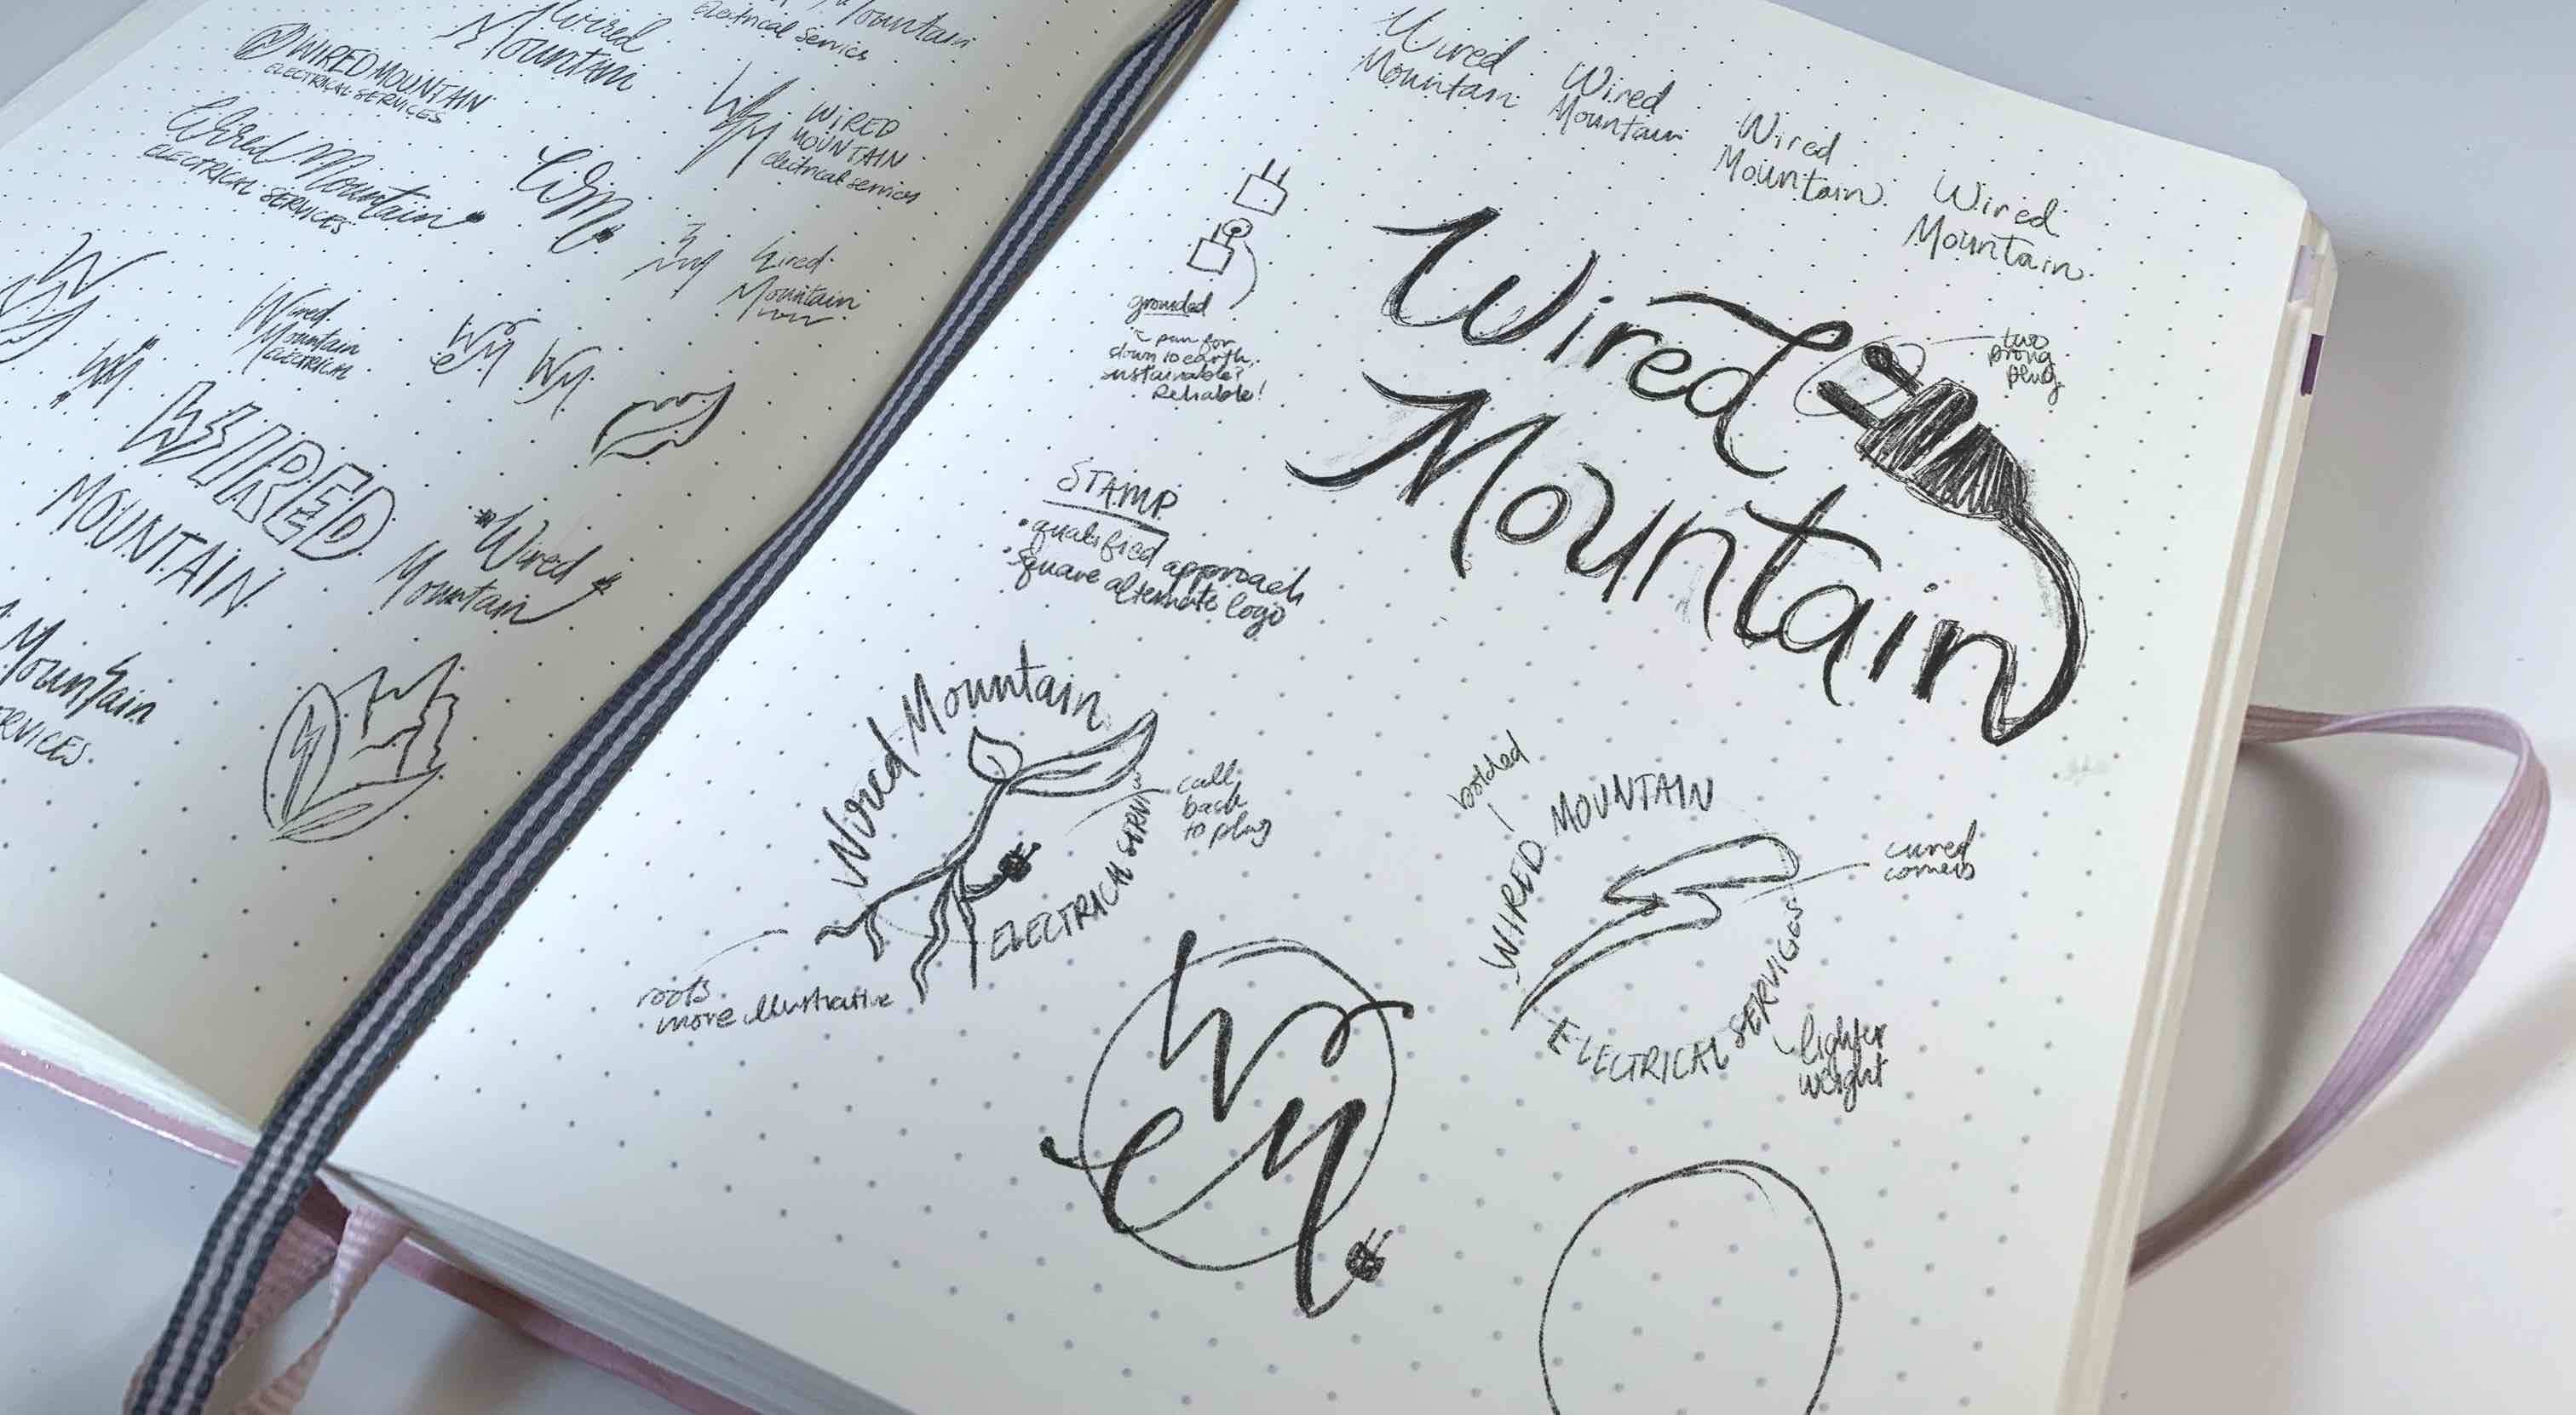 Wired
Mountain
Electrical Services
Mountain
WIRED MOUNTAIN
ELECTRICAL SERVICES
WIRED
MOUNTAIN
electrical services
Wired Mountain
ELECTRICAL SERVICES
Wm
Wired
Mountain
Wired
Mountain
ELECTRICAL
WM
e
WM
WM
WIRED
MOUNTAIN
Wired
Mountain
Mountain
ERVICES
Wired
Mountain
Wired
Mountain
Wired
Mountain
Wired
Mountain
grounded
pun for
down to earth,
sustainable?
Reliable!
Wired
Mountain
two
prong
plug
STAMP
• qualified approach
• square alternate logo
Wired Mountain
ELECTRICAL SERVI
call
back
to plug
roots
more illustrative
bolded
WIRED MOUNTAIN
ELECTRICAL SERVICES
cured
corners
lighter
weight
W
eM